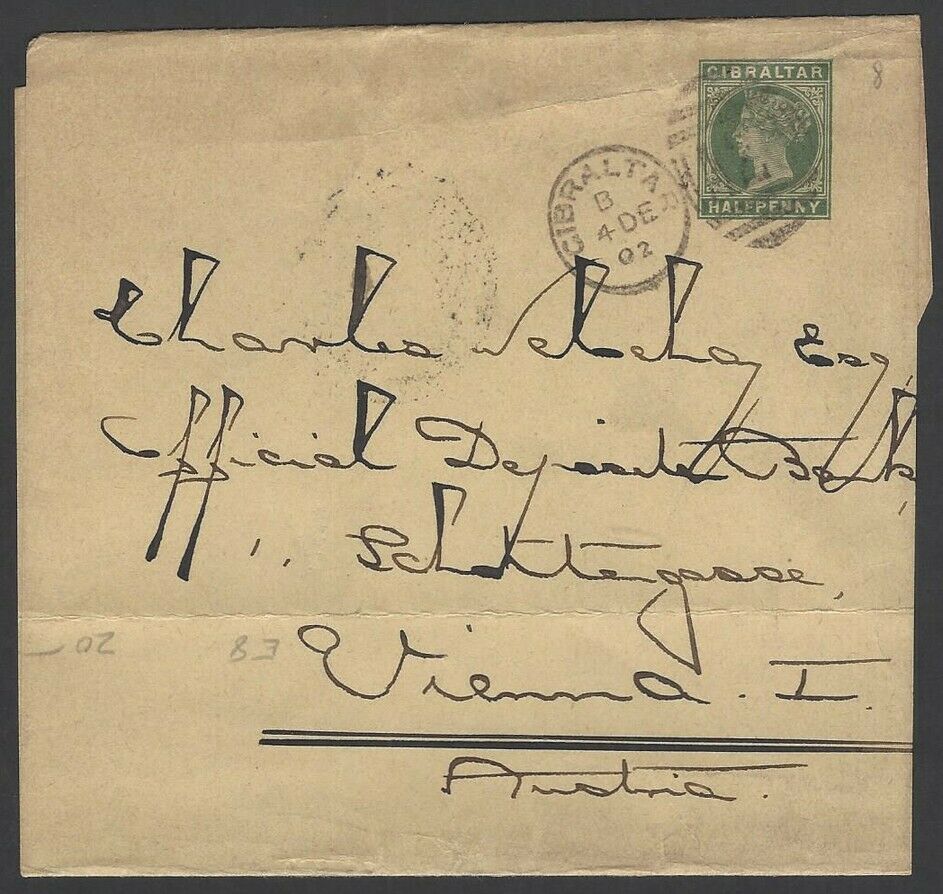 GIBRALTAR
HALFPENNY
8
GIBRALTAR
B
4 DE
02
Charles Esq,
Official Deposits Bank
Schottengasse,
20
E8
Vienna. I.
Austria.